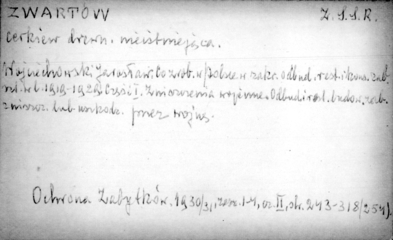 ZWARTÓW Z.S.S.R.
cerkiew drewn. nieistniejąca.
Wojciechowski Jarosław: Co zrob. w Polsce w zakr. odbud. rest. i kons. zab.
szt. w l. 1919-1929. Część I. Zniszczenia wojenne. Odbud. i rest. budow. zab.
zniszcz. lub uszkodz. przez wojnę.
Ochrona Zabytków. 1930/31, zesz. 1-4, cz. II, str. 243-318 (254).